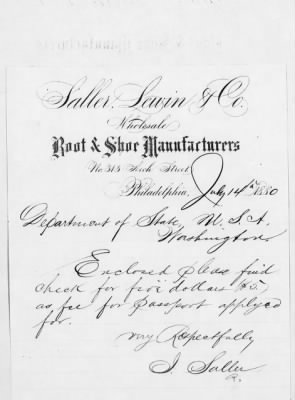 Saller, Lewin & Co.
Wholesale
Boot & Shoe Manufacturers
No. 313 Arch Street
Philadelphia, July 14th 1880
Department of State, U.S.A.
Washington
Enclosed please find
check for five dollars ($5.)
as fee for passport applyed
for.
Very Respectfully
J. Saller